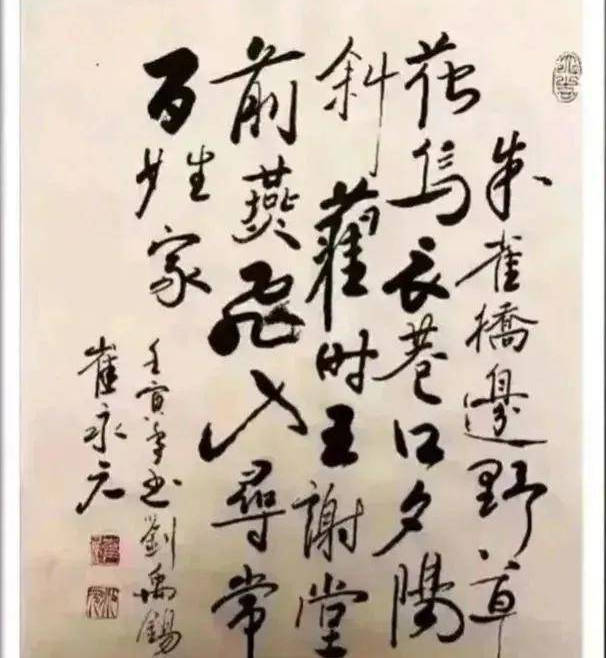 朱雀橋邊野草
花烏衣巷口夕陽
斜舊時王謝堂
前燕飛入尋常
百姓家
壬寅季书劉禹錫
崔永元